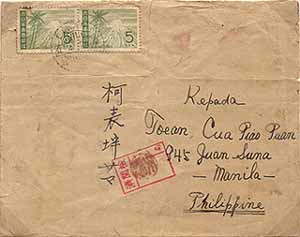 5 5
柯表坪君
Kepada
Toean Cua Piao Puan
945 Juan Suna
— Manila —
Philippine